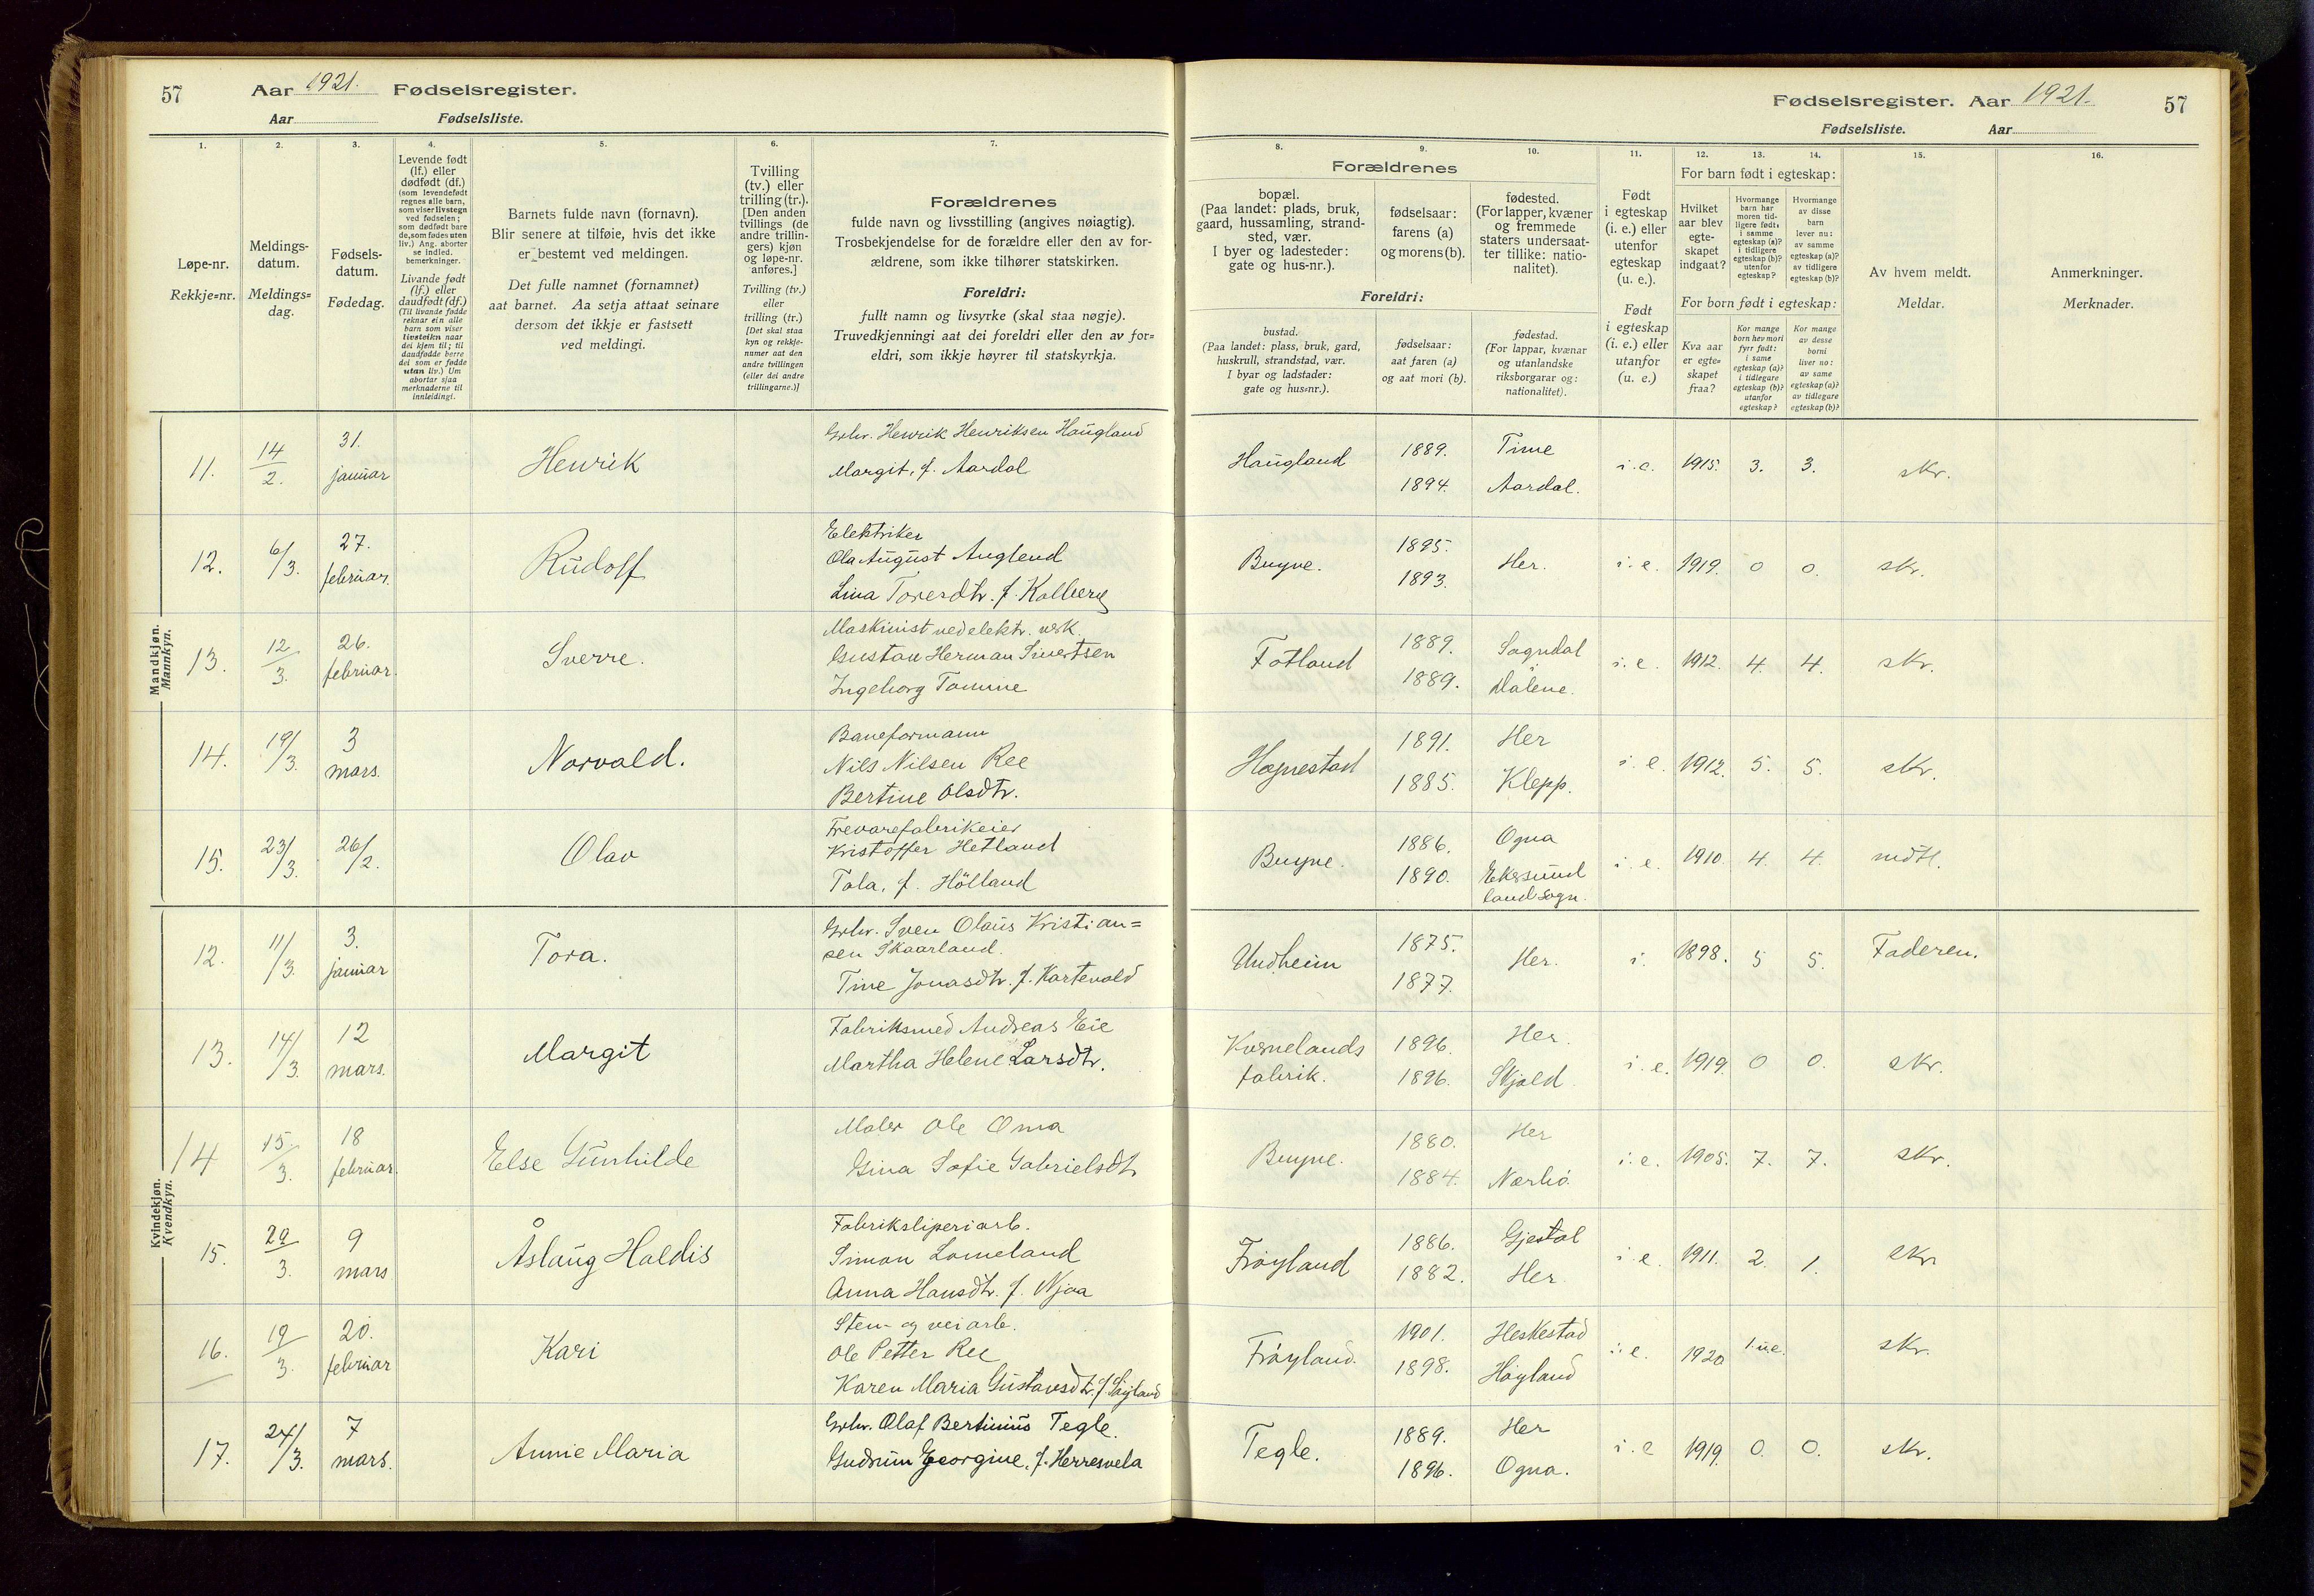 57 Aar 1921. Fødselsregister.
Aar Fødselsliste.
Fødselsregister. Aar 1921. 57
Fødselsliste. Aar
1. 2. 3. 4. 5. 6. 7.
8. 9. 10. 11. 12. 13. 14. 15. 16.
Løpe-nr.
Rekkje=nr.
Meldings-
datum.
Meldings=
dag.
Fødsels-
datum.
Fødedag.
Levende født
(lf.) eller
dødfødt (df.)
(som levendefødt
regnes alle barn,
som viser livstegn
ved fødselen;
som dødfødt bare
de, som fødes uten
liv.) Ang. aborter
se indled.
bemerkninger.
Livande født
(lf.) eller
daudfødt (df.)
(Til livande fødde
reknar ein alle
barn som viser
livsteikn naar
dei kjem til; til
daudfødde berre
dei som er fødde
utan liv.) Um
abortar sjaa
merknaderne til
innleidingi.
Barnets fulde navn (fornavn).
Blir senere at tilføie, hvis det ikke
er bestemt ved meldingen.
Det fulle namnet (fornamnet)
aat barnet. Aa setja attaat seinare
dersom det ikkje er fastsett
ved meldingi.
Tvilling
(tv.) eller
trilling (tr.).
[Den anden
tvillings (de
andre trillin-
gers) kjøn
og løpe-nr.
anføres.]
Tvilling (tv.)
eller
trilling (tr.)
[Det skal staa
kyn og rekkje-
numer aat den
andre tvillingen
(eller dei andre
trillingarne.)]
Forældrenes
fulde navn og livsstilling (angives nøiagtig).
Trosbekjendelse for de forældre eller den av for-
ældrene, som ikke tilhører statskirken.
Foreldri:
fullt namn og livsyrke (skal staa nøgje).
Truvedkjenningi aat dei foreldri eller den av for=
eldri, som ikkje høyrer til statskyrkja.
Forældrenes
bopæl.
(Paa landet: plads, bruk,
gaard, hussamling, strand-
sted, vær.
I byer og ladesteder:
gate og hus-nr.).
fødselsaar:
farens (a)
og morens (b).
fødested.
(For lapper, kvæner
og fremmede
staters undersaat-
ter tillike: natio-
nalitet).
Foreldri:
bustad.
(Paa landet: plass, bruk, gard,
huskrull, strandstad, vær.
I byar og ladstader:
gate og hus=nr.).
fødselsaar:
aat faren (a)
og aat mori (b).
fødestad.
(For lappar, kvænar
og utanlandske
riksborgarar og:
nationalitet).
Født
i egteskap
(i. e.) eller
utenfor
egteskap
(u. e.).
Født
i egteskap
(i. e.) eller
utanfor
(u. e.)
For barn født i egteskap:
Hvilket
aar blev
egte-
skapet
indgaat?
Hvormange
barn har
moren tid-
ligere født:
i samme
egteskap (a)?
i tidligere
egteskap (b)?
utenfor
egteskap?
Hvormange
av disse
barn
lever nu:
av samme
egteskap (a)?
av tidligere
egteskap (b)?
For born født i egteskap:
Kva aar
er egte=
skapet
fraa?
Kor mange
born hev mori
fyrr født:
i same
egteskap (a)?
i tidlegare
egteskap (b)?
utanfor
egteskap?
Kor mange
av desse
borni
liver no:
av same
egteskap (a)?
av tidlegare
egteskap (b)?
Av hvem meldt.
Meldar.
Anmerkninger.
Merknader.
Mandkjøn.
Mannkyn.
11. 14/2. 31. januar Henrik Grbr. Henrik Henriksen Haugland
Margit, f. Aardal
Haugland 1889. Time i.e. 1915. 3. 3. skr.
1894. Aardal.
12. 6/3. 27. februar. Rudolf Elektriker
Ola August Anglend
Lina Toresdtr. f. Kalberg
Bryne. 1895. Her. i.e. 1919. 0 0. skr.
1893.
13. 12/3. 26. februar. Sverre. Maskinist ved elektr. verk.
Gustav Herman Sivertsen
Ingeborg Tomine
Fotland 1889. Sogndal i.e. 1912. 4. 4. skr.
1889. Dalene.
14. 19/3. 3 mars. Norvald. Baneformann
Nils Nilsen Ree
Bertine Olsdtr.
Hognestad 1891. Her i.e. 1912. 5. 5. skr.
1885. Klepp.
15. 23/3. 26/2. Olav Trevarefabrikeier
Kristoffer Hetland
Tala, f. Hölland
Bryne. 1886. Ogna i.e. 1910. 4. 4. mdtl.
1890. Ekersund
landsogn.
Kvindekjøn.
Kvendkyn.
12. 11/3. 3. januar Tora. Grbr. Sven Olaus Kristian=
sen Skaarland.
Tine Jonasdtr. f. Kartevold
Undheim 1875. Her. i. 1898. 5 5. Faderen.
1877.
13. 14/3. 12 mars. Margit Fabriksmed Andreas Eie
Martha Helene Larsdtr.
Kvernelands 1896. Her. i.e. 1919. 0 0. skr.
fabrik. 1896. Skjold
14 15/3. 18 februar. Else Gunhilde Maler Ole Oma
Gina Sofie Gabrielsdtr
Bryne. 1880. Her i.e. 1905. 7. 7. skr.
1884. Nærbö.
15. 29/3. 9 mars Åslaug Haldis Fabriksliperiarb.
Simon Lomeland
Anna Hansdtr. f. Njaa
Fröyland 1886. Gjestal i.e. 1911. 2. 1. skr
1882. Her.
16. 19/3. 20. februar Kari Sten- og veiarb.
Ole Petter Ree
Karen Maria Gustavsdtr. f.
Fröyland. 1901. Heskestad i.e. 1920 1.u.e. skr.
1898. Höyland
17. 24/3. 7 mars. Annie Maria Grbr. Olaf Bertinius Tegle.
Gudrun Georgine, f. Herresvela
Tegle. 1889. Her i.e 1919. 0. 0. skr.
1896. Ogna.